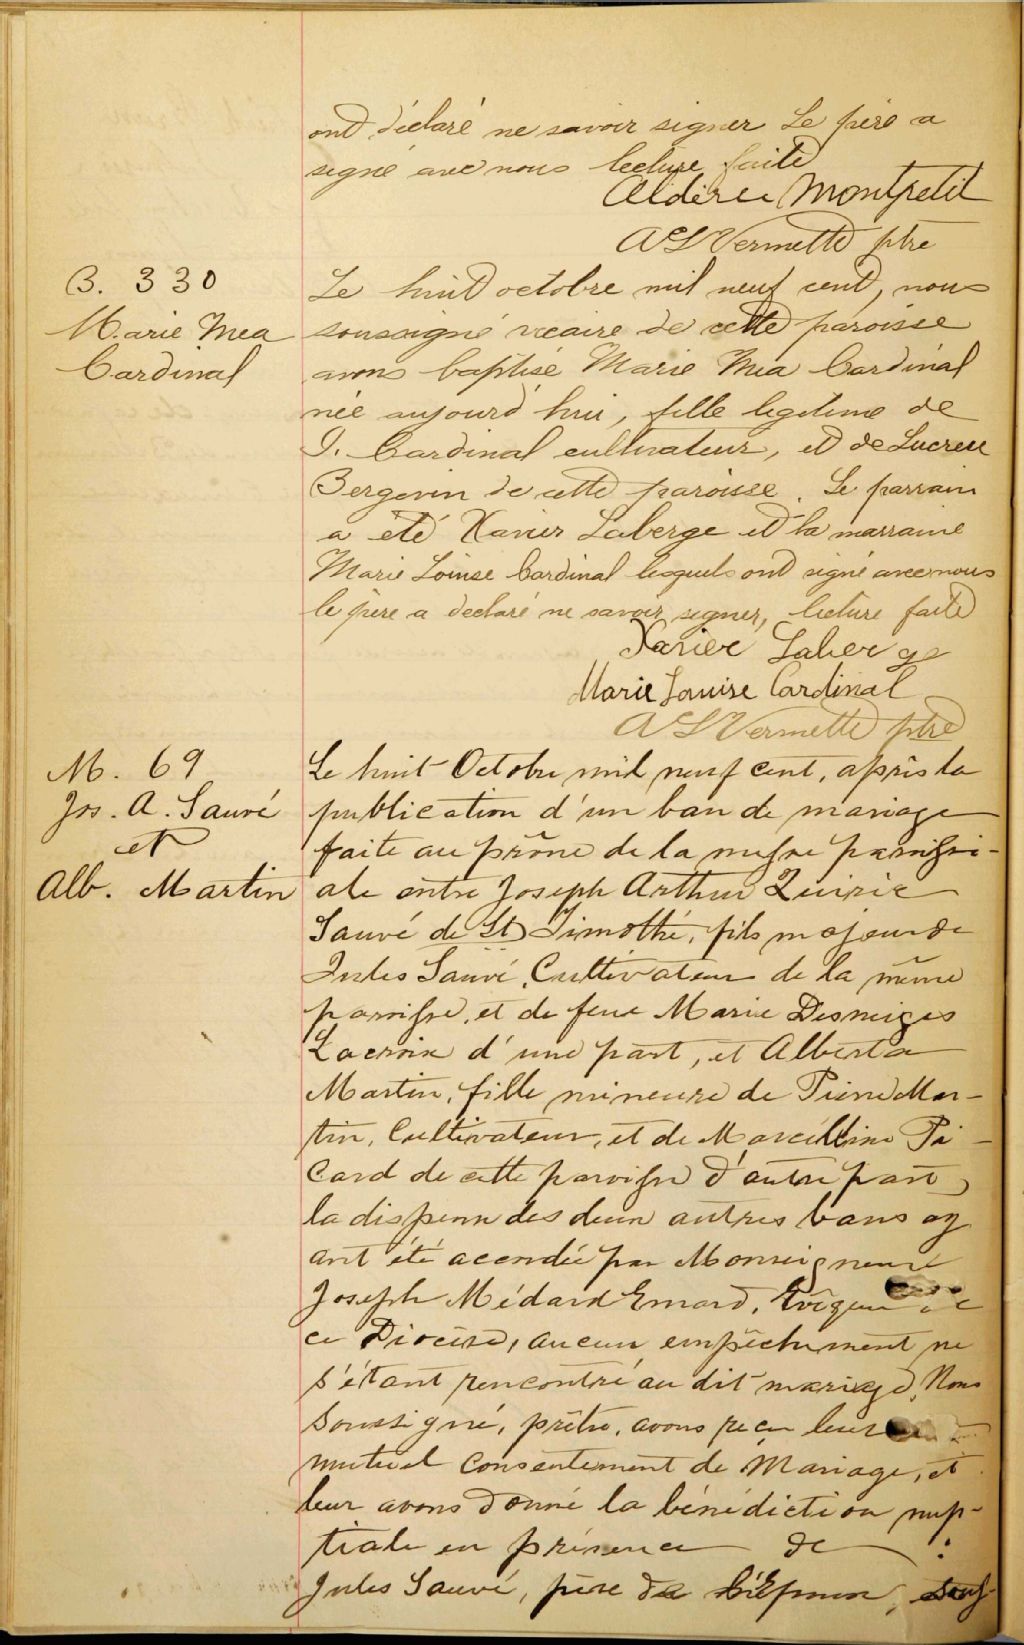 ont déclaré ne savoir signer Le père a
signé avec nous lecture faite
Aldéric Montpetit
A L Vermette ptre
B. 330
Marie Mea
Cardinal
Le huit octobre mil neuf cent, nous
soussigné vicaire de cette paroisse
avons baptisé Marie Mea Cardinal
née aujourd'hui, fille legitime de
J. Cardinal cultivateur, et de Lucrece
Bergevin de cette paroisse. Le parrain
a été Xavier Laberge et la marraine
Marie Louise Cardinal lesquels ont signé avec nous
le père a declaré ne savoir signer, lecture faite
Xavier Laberge
Marie Louise Cardinal
A L Vermette ptre
M. 69
Jos. A. Sauvé
et
Alb. Martin
Le huit Octobre mil neuf cent, après la
publication d'un ban de mariage
faite au prône de la messe paroissi-
ale entre Joseph Arthur Quirie
Sauvé de St Timothé, fils majeur de
Jules Sauvé, Cultivateur de la même
paroisse, et de feue Marie Desneiges
Lacroix d'une part, et Alberta
Martin, fille mineure de Pierre Mar-
tin, Cultivateur, et de Marcelline Pi-
card de cette paroisse d'autre part,
la dispense des deux autres bans ay
ant été accordée par Monseigneur
Joseph Médard Emard, Evêque de
ce Diocèse, aucun empêchement ne
s'étant rencontré au dit mariage, Nous
Soussigné, prêtre, avons reçu leur
mutuel consentement de Mariage, et
leur avons donné la bénédiction nup-
tiale en présence de :
Jules Sauvé, père de l'époux, Sous-